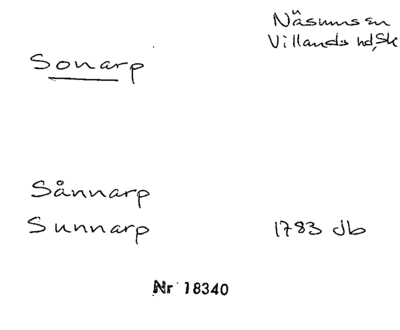 Näsums sn
Villands hd, Sk
Sonarp
Sånnarp
Sunnarp 1783 db
Nr 18340